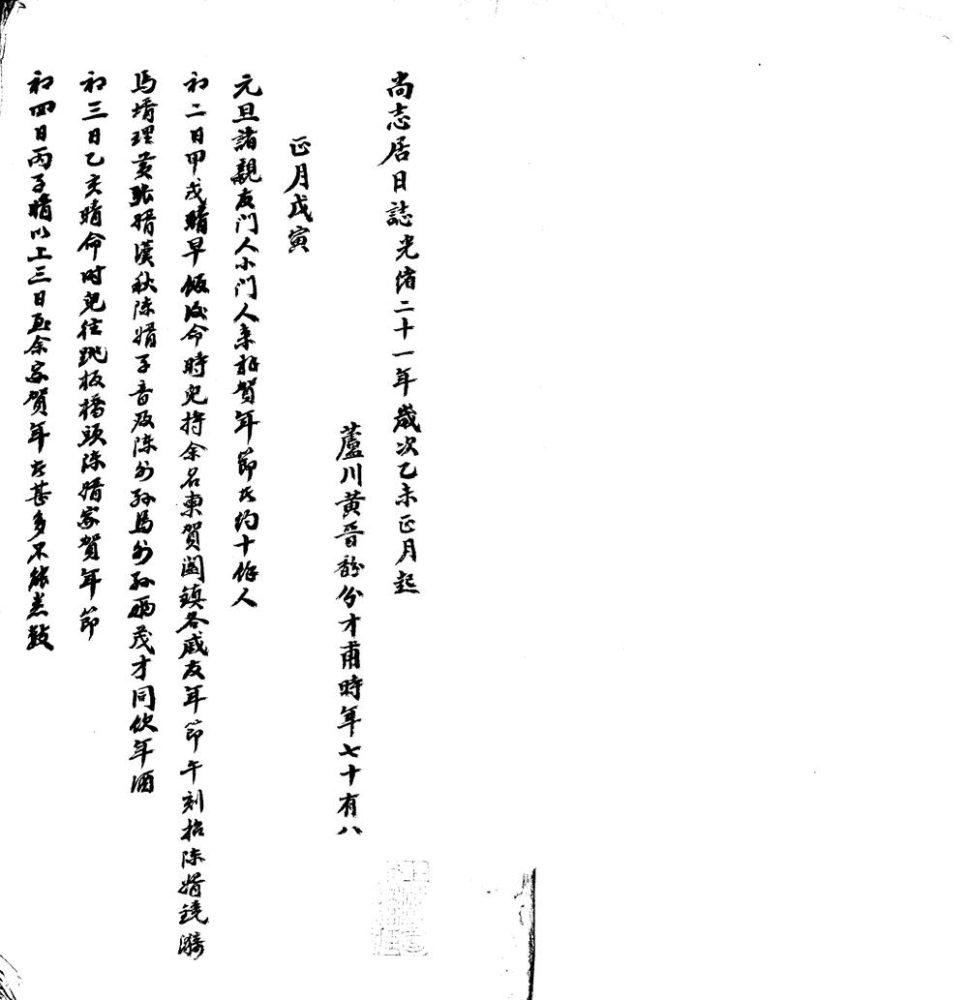 尚志居日誌光緒二十一年歲次乙未正月起
蘆川黃晋馚分才甫時年七十有八
正月戊寅
元旦諸親友门人小门人來拜賀年節者约十餘人
初二日甲戌晴早飯後命時兒持余名柬賀闔鎮各戚友年節午刻招陈婿鏡
馬婿理黄張婿漢秋陈婿子音及陈外孫馬外孫兩茂才同飲年酒
初三日乙亥晴命时兒往跳板橋頭陈婿家賀年節
初四日丙子晴以上三日至余家賀年者甚多不能悉數